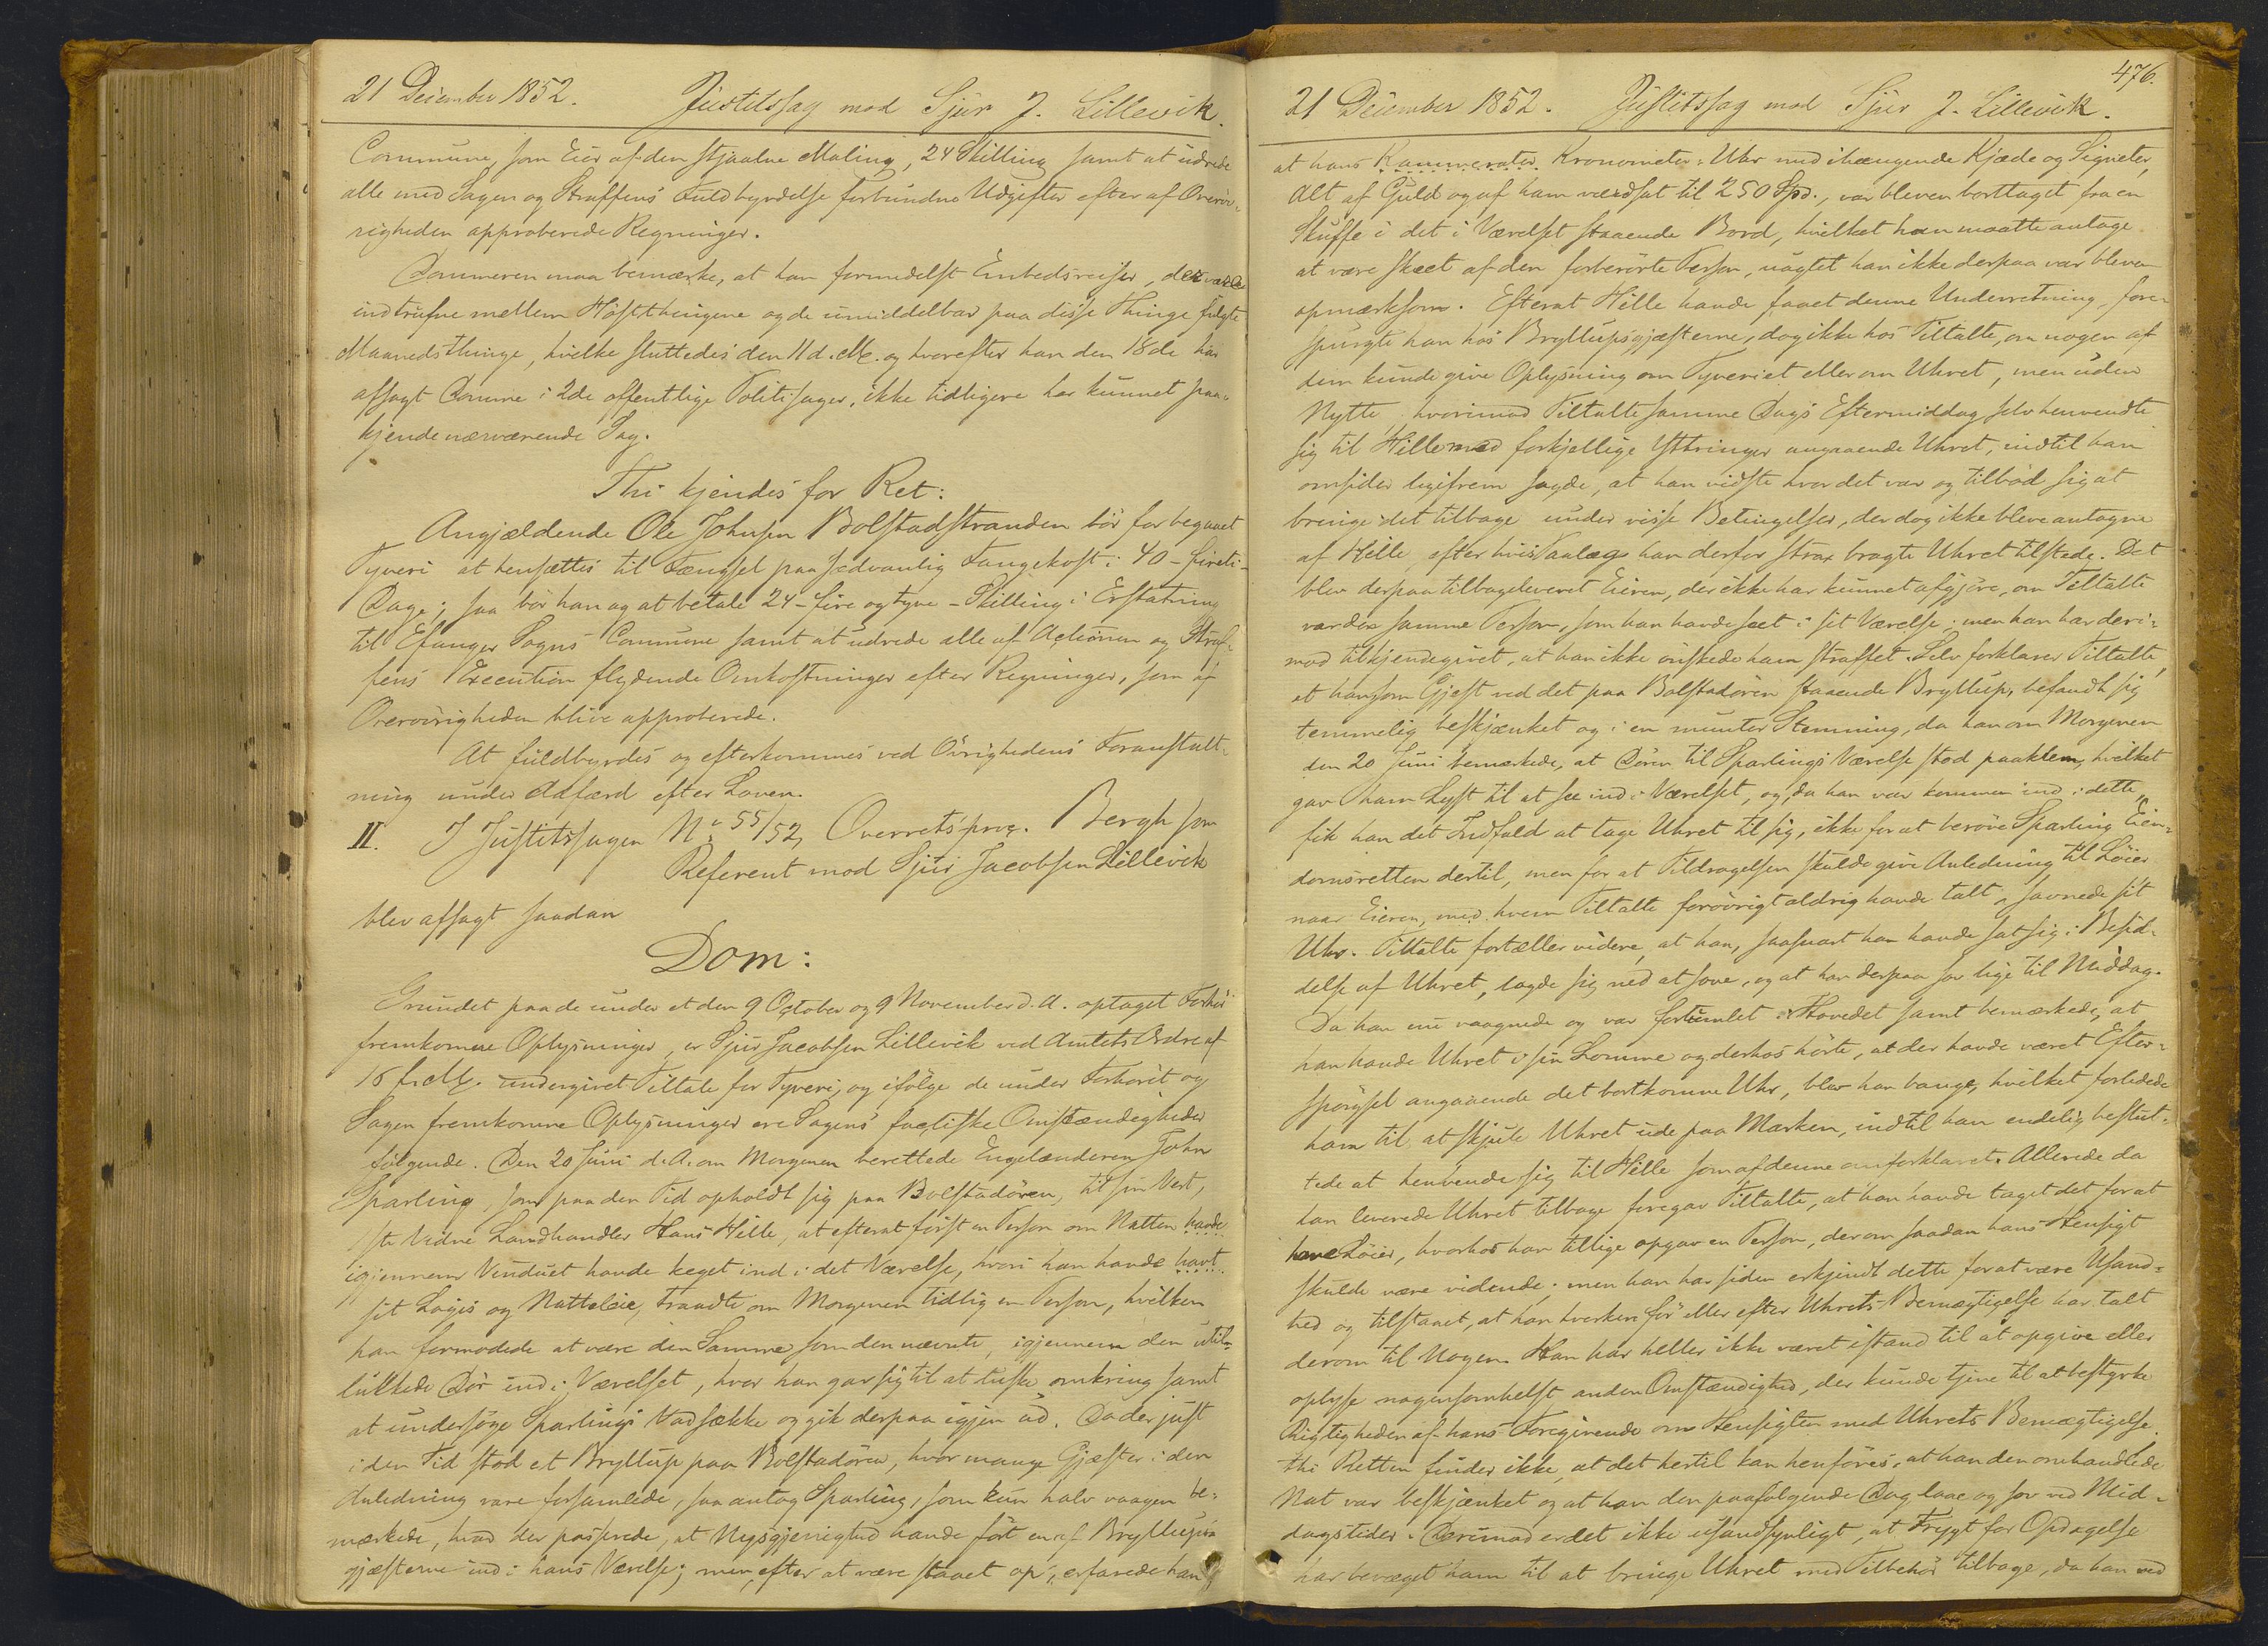 21 December 1852. Justitssag mod Sjur J. Lillevik.
Commune, som Eier af den stjaalne Maling, 24 Skilling samt at udrede
alle med Sagen og Straffens Fuldbyrdelse forbundne Udgifter efter af Overöv-
righeden approberede Regninger.
Dommeren maa bemærke, at han formedelst Embedsreiser, der vare
indtrufne mellem Höstthingene og de umiddelbar paa disse Thinge fulgte
Maanedsthinge, hvilke sluttedes den 11 d. M. og hvorefter han den 18de har
afsagt Domme i 2de offentlige Politisager, ikke tidligere har kunnet paa-
kjende nærværende Sag.
Thi kjendes for Ret:
Angjældende Ole Johnsen Bolstadstranden bör for begaaet
Tyveri at hensættes til Fængsel paa sedvanlig Fangekost i 40 - fireti -
Dage; saa bör han og at betale 24 - fire og tyve - Skilling i Erstatning
til Efanger Sogns Commune samt at udrede alle af Actionen og Straf-
fens Execution flydende Omkostninger efter Regninger, som af
Overövrigheden blive approberede.
At fuldbyrdes og efterkommes ved Övrighedens Foranstalt-
ning under Adfærd efter Loven.
II. I Justitssagen No 55/52, Overretsproc. Bergh som
Referent mod Sjur Jacobsen Lillevik
blev afsagt saadan
Dom:
Grundet paa de under et den 9 October og 9 November d. A. optaget Forhör
fremkomne Oplysninger er Sjur Jacobsen Lillevik ved Amtets Ordre af
16 f. M. undergivet Tiltale for Tyveri, og ifölge de under Forhöret og
Sagen fremkomne Oplysninger ere Sagens factiske Omstændigheder
fölgende. Den 20 Juni d. A. om Morgenen berettede Engelænderen John
Sparling, som paa den Tid opholdt sig paa Bolstadören, til sin Vert,
1ste Vidne Landhandler Hans Hille, at efterat först en Person om Natten havde
igjennem Vinduet havde keget ind i det Værelse, hvori han havde havt
sit Logis og Natteleie, traadte om Morgenen tidlig en Person, hvilken
han formodede at være den Samme som den nævnte, igjennem den util-
lukkede Dör ind i Værelset, hvor han gav sig til at luske omkring samt
at undersöge Sparlings Vadsække og gik derpaa igjen ud. Da der just
i den Tid stod et Bryllup paa Bolstadören, hvor mange Gjæster i den
Anledning vare forsamlede, saa antog Sparling, som kun halv vaagen be-
mærkede, hvad der passerede, at Nysgjerrighed havde fört en af Bryllups-
gjæsterne ind i hans Værelse; men, efter at være staaet op, erfarede han
476.
21 December 1852. Justitssag mod Sjur J. Lillevik.
at hans Kammerater Kronometer-Uhr med ihængende Kjæde og Signeter,
Alt af Guld og af ham værdsat til 250 Spd., var bleven borttaget fra en
Skuffe i det i Værelset staaende Bord, hvilket han maatte antage
at være skeet af den forberörte Person, uagtet han ikke derpaa var bleven
opmærksom. Efterat Hille havde faaet denne Underretning, fore-
spurgte han hos Bryllupsgjæsterne, dog ikke hos Tiltalte, om nogen af
dem kunde give Oplysning om Tyveriet eller om Uhret, men uden
Nytte, hvorimod Tiltalte samme Dags Eftermiddag selv henvendte
sig til Hille med forskjellige Yttringer angaaende Uhret, indtil han
omsider ligefrem sagde, at han vidste hvor det var og tilböd sig at
bringe det tilbage under visse Betingelser, der dog ikke bleve antagne
af Hille efter hvis Paalæg han derfor strax bragte Uhret tilstede. Det
blev derpaa tilbageleveret Eieren, der ikke har kunnet afgjöre, om Tiltalte
var den samme Person, som han havde seet i sit Værelse; men han har deri-
mod tilkjendegivet, at han ikke önskede ham straffet. Selv forklarer Tiltalte,
at han som Gjest ved det paa Bolstadören staaende Bryllup, befandt sig
temmelig beskjænket og i en munter Stemning, da han om Morgenen
den 20 Juni bemærkede, at Dören til Sparlings Værelse stod paaklem, hvilket
gav ham Lyst til at see ind i Værelset, og, da han var kommen ind i dette,
fik han det Indfald at tage Uhret til sig, ikke for at beröve Sparling Eien-
domsretten dertil, men for at Tildragelsen skulde give Anledning til Löier
naar Eieren, med hvem Tiltalte forövrigt aldrig havde talt, savnede sit
Uhr. Tiltalte fortæller videre, at han, saasnart han havde sat sig i Besid-
delse af Uhret, lagde sig ned at sove, og at han derpaa sov lige til Middag.
Da han nu vaagnede og var fortumlet i Hovedet samt bemærkede, at
han havde Uhret i sin Lomme og derhos hörte, at der havde været Efter-
spörgsel angaaende det bortkomne Uhr, blev han bange, hvilket forledede
ham til at skjule Uhret ude paa Marken, indtil han endelig beslut-
tede at henvende sig til Hille som af denne anforklaret. Allerede da
han leverede Uhret tilbage foregav Tiltalte, at han havde taget det for at
have Löier, hvorhos han tillige opgav en Person, der om saadan hans Hensigt
skulde være vidende; men han har siden erkjendt dette for at være Usand-
hed og tilstaaet, at han hverken för eller efter Uhrets Bemægtigelse har talt
derom til Nogen. Han har heller ikke været istand til at opgive eller
oplyse nogensomhelst anden Omstændighed, der kunde tjene til at bestyrke
Rigtigheden af hans Foregivende om Hensigten med Uhrets Bemægtigelse,
thi Retten finder ikke, at det hertil kan henföres, at han den omhandlede
Nat var beskjænket og at han den paafölgende Dag laae og sov ved Mid-
dagstider. Derimod er det ikke usandsynligt, at Frygt for Opdagelse
har bevæget ham til at bringe Uhret med Tilbehör tilbage, da han ved